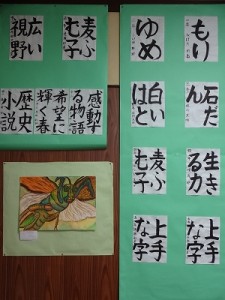 もり
ゆめ
石だん
白いはと
生きる力
麦ふむ子
上手な字
上手な字
麦ふむ子
広い視野
感動する物語
希望に輝く春
歴史小説